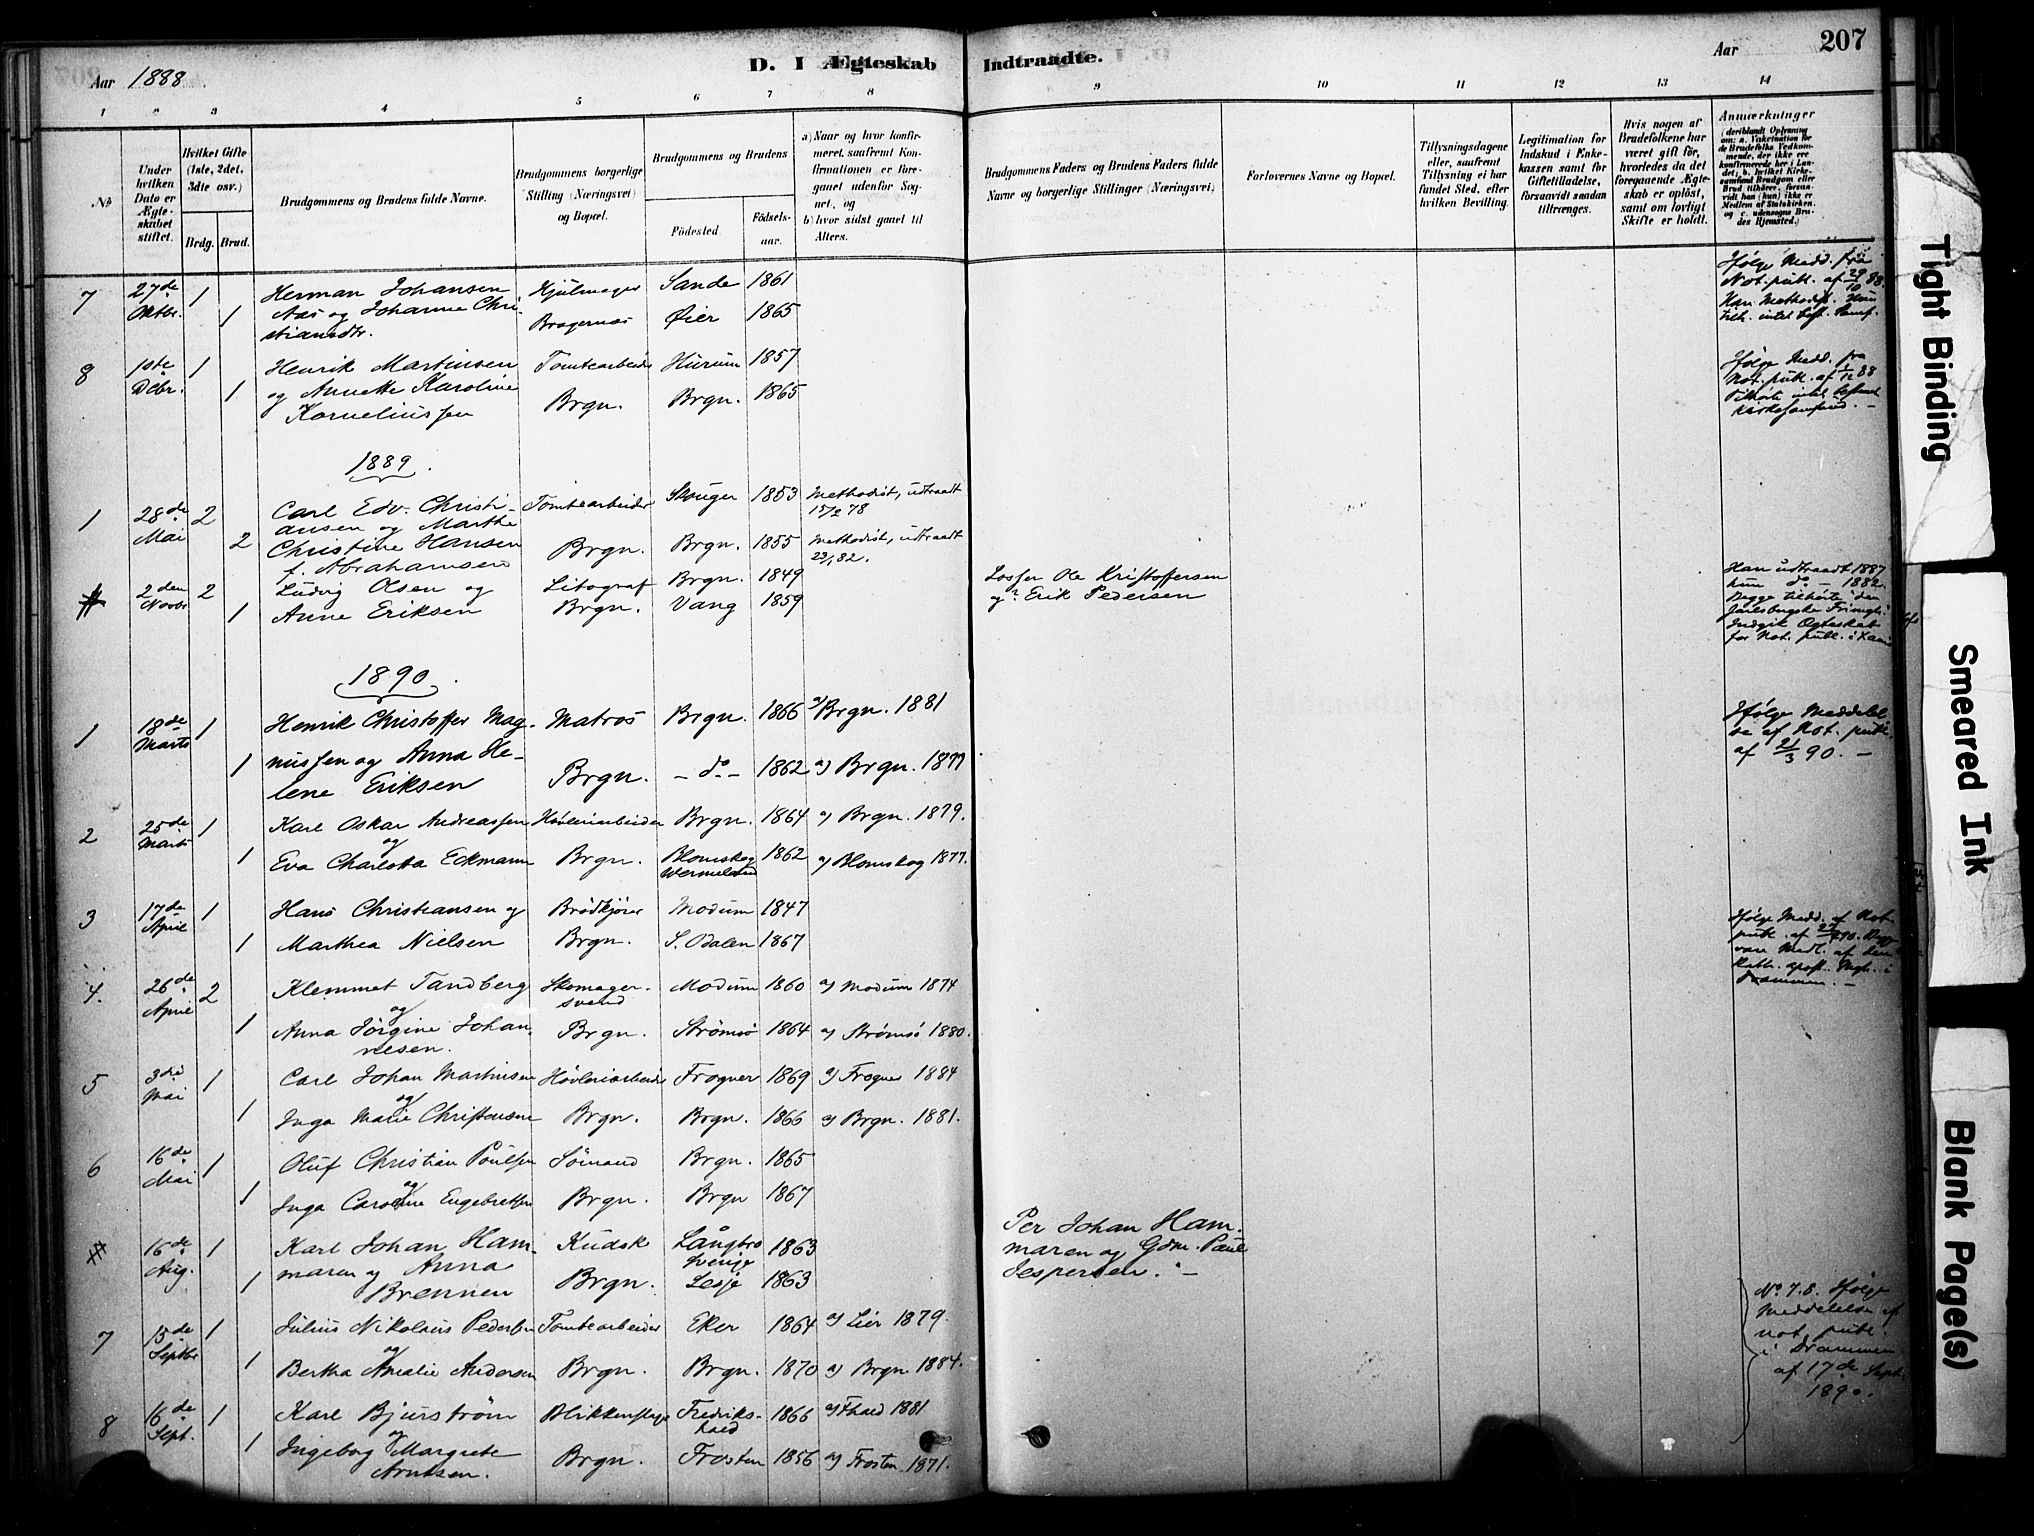 Aar 1888.
D. I Ægteskab Indtraadte.
Aar
207
1 2 3 4 5 6 7 8 9 10 11 12 13 14
No
Under hvilken Dato er Ægteskabet stiftet.
Hvilket Gifte (1ste, 2det, 3die osv.)
Brdg. Brud.
Brudgommens og Brudens fulde Navne.
Brudgommens borgerlige Stilling (Næringsvei) og Bopæl.
Brudgommens og Brudens
Födested. Födsels-aar.
a) Naar og hvor konfirmeret, saafremt Konfirmationen er foregaaet udenfor Sognet, og
b) hvor sidst gaaet til Alters.
Brudgommens Faders og Brudens Faders fulde Navne og borgerlige Stillinger (Næringsvei)
Forlovernes Navne og Bopæl.
Tillysningsdagene eller, saafremt Tillysning ei har fundet Sted, efter hvilken Bevilling.
Legitimation for Indskud i Enkekassen samt for Giftetilladelse, forsaavidt saadan tiltrænges.
Hvis nogen af Brudefolkene har været gift för, hvorledes da det foregaaende Ægteskab er oplöst, samt om lovligt Skifte er holdt.
Anmærkninger
(deriblandt Oplysning om: a. Vakcination for de Brudefolks Vedkommende, der ikke ere konfirmerede her i Landet; b. hvilket Kirkesamfund Brudgom eller Brud tilhörer, forsaavidt han (hun) ikke er Medlem af Statskirken, og c. udensogns Brudes Hjemsted.)
7 27de Oktbr. 1 Herman Johansen Hjulmager Sande 1861
1 Aas og Johanne Christiansdtr. Bragernæs Øier 1865
Ifølge Medd. fra Not. publ. af 29/10 88. Han Methodist. Hun tilh. intet best. Samf.
8 1ste Decbr. 1 Henrik Martinsen Tomtearbeider Hurum 1857
1 og Annette Karoline Korneliussen Brgn. Brgn. 1865
Ifølge Medd. fra Not. publ. af 88 Tilhørte intet bestemt Kirkesamfund. –
1889.
1 28de Mai 2 Carl Edv. Christiansen og Marthe Tomtearbeider Skouger 1853 Methodist, udtraadt 15/2 78
2 Christine Hansen f. Abrahamsen Brgn. Brgn. 1855 Methodist, udtraadt 82.
# 2den Novbr 2 Ludvig Olsen og Litograf Brgn. 1849 Losser Ole Kristoffersen
1 Anne Eriksen Brgn. Vang 1859 og Erik Pedersen
Han udtraadt 1887 hun do – 1882. Begge tilhørte den Jarlsbergske Frimgh. Indgik Ægteskab for Not. publ. i
1890.
1 18de Marts 1 Henrik Christoffer Mag- Matros Brgn. 1866 a) Brgn. 1881
1 nussen og Anna Helene Eriksen Brgn. – do – 1862 a) Brgn. 1877
Ifølge Meddelelse af Not. publ. af 21/3 90. –
2 25de Marts 1 Karl Oskar Andreassen Høvleriarbeider Brgn. 1864 a) Brgn. 1879.
1 og Eva Charlotta Eckmann Brgn. Blomskog Wermeland 1862 a) Blomskog 1877.
3 17de April 1 Hans Christiansen og Brødkjører Modum 1847
1 Marthea Nielsen Brgn. S. Odalen 1867
Ifølge Medd. af Not. publ. af 90. Begge vare Medl. af den kath. apost. Mgh. i Drammen. –
4. 26de April 2 Klemmet Tandberg Skomagersvend Modum 1860 a) Modum 1874
1 og Anna Jørgine Johannesen. Brgn. Strømsø 1864 a) Strømsø 1880.
5 3die Mai 1 Carl Johan Martinsen Høvleriarbeider Frogner 1869 a) Frogner 1884
1 og Inga Marie Christensen Brgn. Brgn. 1866 a) Brgn. 1881.
6 16de Mai 1 Oluf Christian Poulsen Sømand Brgn. 1865
1 og Inga Caroline Engebretsen Brgn. Brgn 1867
# 16de Aug. 1 Karl Johan Ham- Kudsk Långbro Sverige 1863 Per Johan Ham-
1 maren og Anna Brennen Brgn. Lesje 1863 maren og Gdm. Paul Jespersen. –
7 15de Septbr 1 Julius Nikolaus Pedersen Tomtearbeider Eker 1864 a) Lier 1879.
1 og Bertha Amalie Andersen Brgn. Brgn. 1870 a) Brgn. 1884.
No 7. 8. Ifølge Meddelelse af not. publ. i Drammen af 17de Sept. 1890.
8 16de Sept. 1 Karl Bjurstrøm Blikkenslager Fredrikshald 1866 a) Fhald 1881
1 og Ingeborg Margrete Arntsen. Brgn. Frosten 1856 a) Frosten 1871.
Tight Binding
Smeared Ink
Blank Page(s)